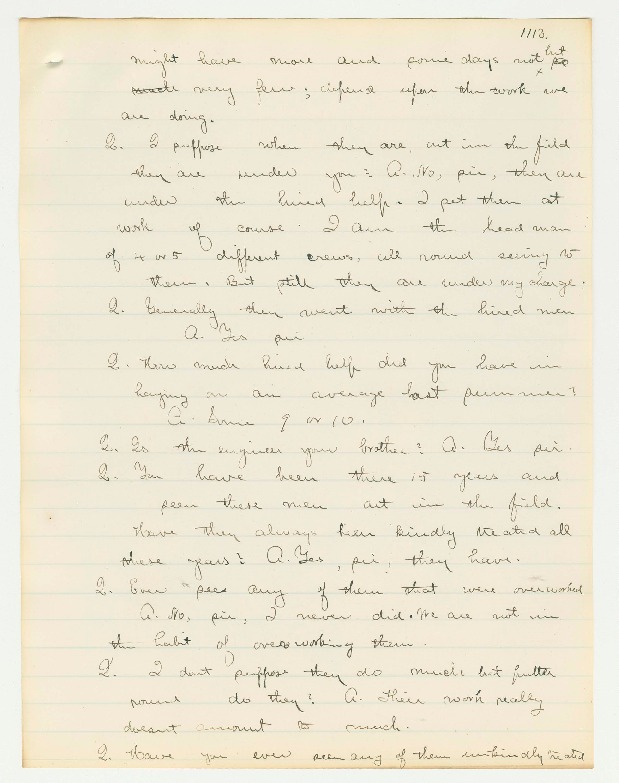 1113.
might have more and some days not but so
much very few; depend upon the work we
are doing.
Q. I suppose when they are out in the field
they are under you? A. No, sir, they are
under the hired help. I set them at
work of course. I am the head man
of 4 or 5 different crews, all round seeing to
them. But still they are under my charge.
Q. Generally they went with the hired men
A. Yes sir
Q. How much hired help did you have in
haying on an average last summer?
A. Some 9 or 10.
Q. Is the engineer your brother? A. Yes sir.
Q. You have been there 15 years and
seen these men out in the field.
Have they always been kindly treated all
these years? A. Yes, sir, they have.
Q. Ever see any of them that were overworked
A. No, sir, I never did. We are not in
the habit of overworking them.
Q. I dont suppose they do much but putter
round do they? A. Their work really
doesnt amount to much.
Q. Have you ever seen any of them unkindly treated